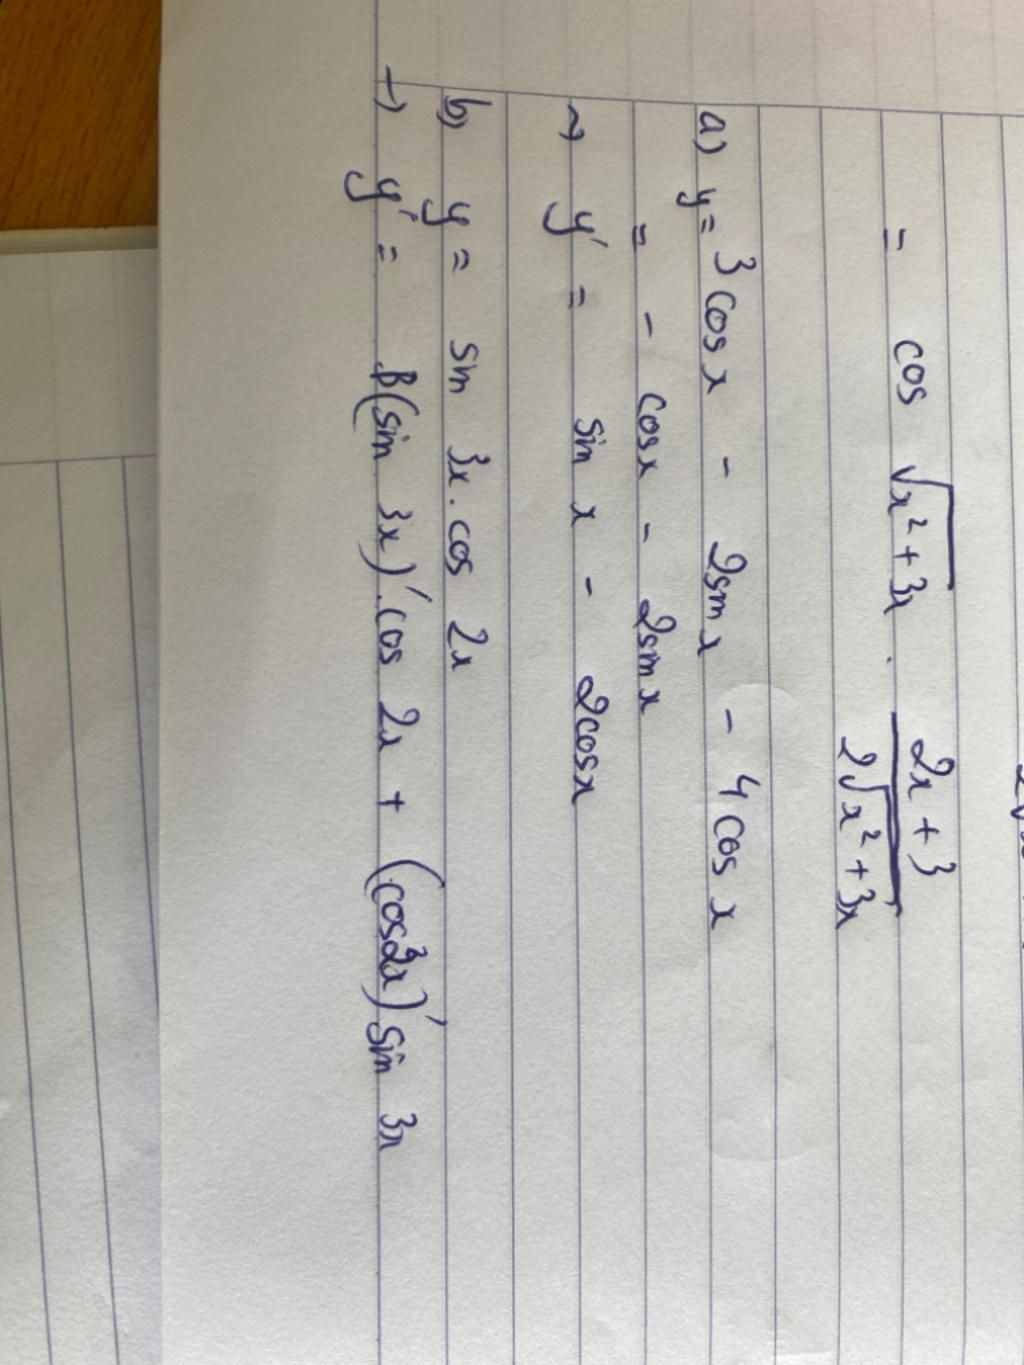 = cos √(x² + 3x) . (2x + 3) / (2√(x² + 3x))
a) y = 3 cos x - 2 sin x - 4 cos x
= - cos x - 2 sin x
→ y' = sin x - 2 cos x
b) y = sin 3x . cos 2x
→ y' = (sin 3x)' . cos 2x + (cos 2x)' sin 3x